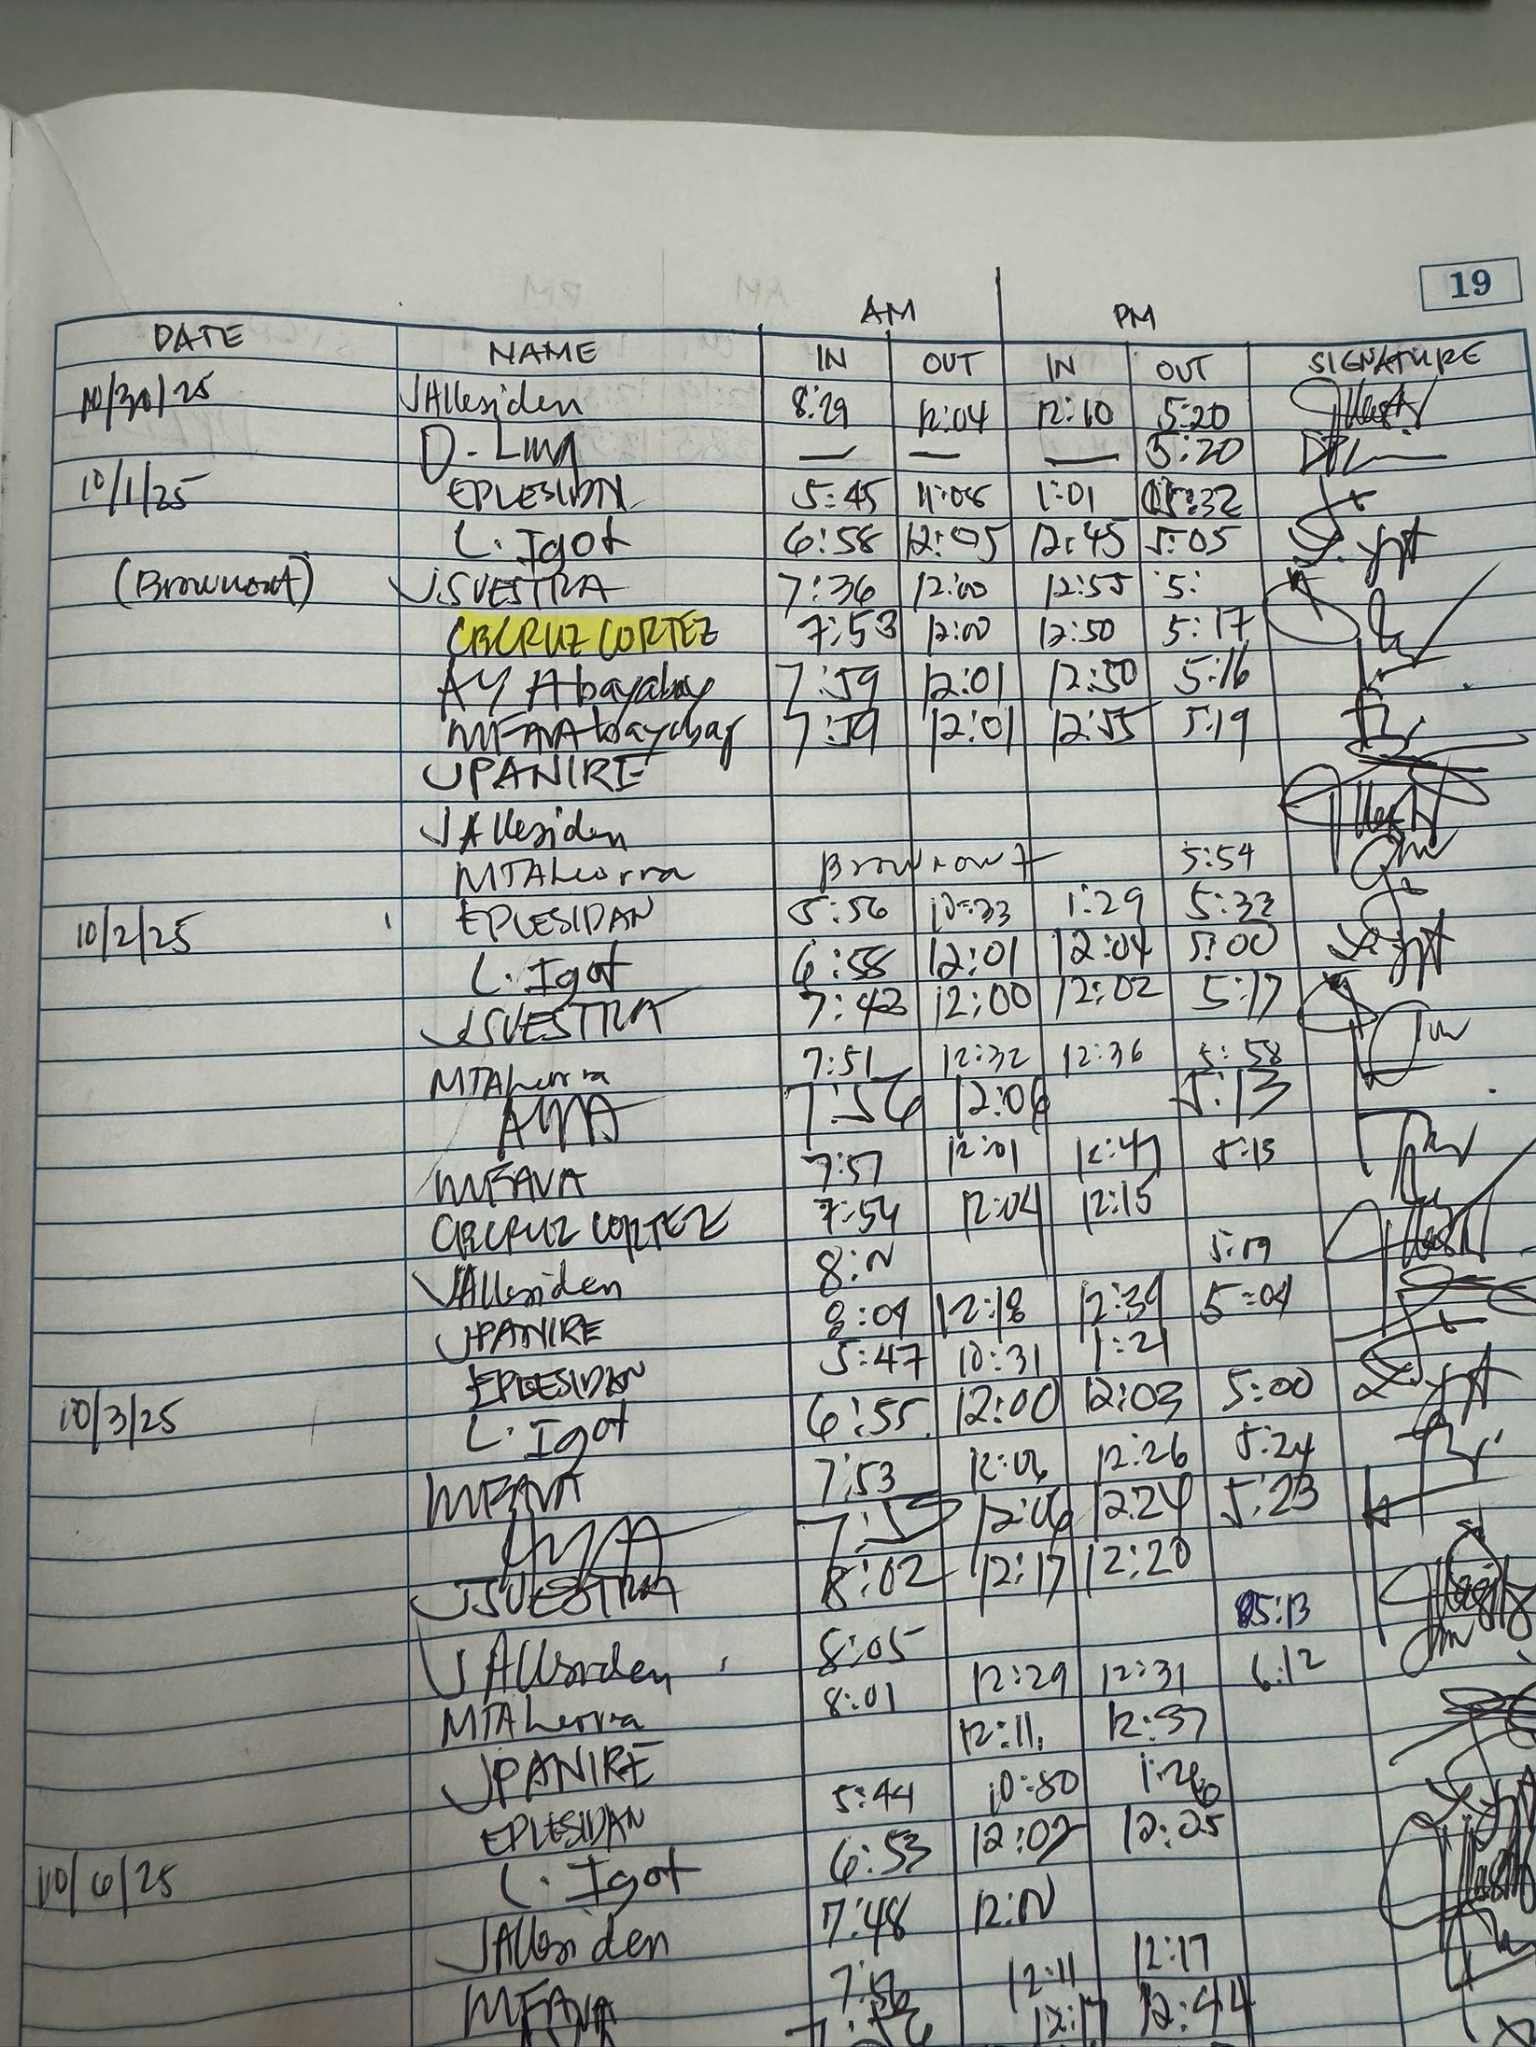 19
AM PM
DATE NAME IN OUT IN OUT SIGNATURE
10/30/25 JAllesiden 8:29 12:04 12:10 5:20
D. Ling — — — 5:20
10/1/25 EPLESIDAN 5:45 11:08 1:01 5:32
L. Igot 6:58 12:05 12:45 5:05
(Brownout) JSVESTRA 7:36 12:00 12:55 5:
CBCRUZ CORTEZ 7:53 12:00 12:50 5:17
AY Abayabay 7:59 12:01 12:50 5:16
MFAVA 7:59 12:01 12:55 5:19
JPANIRE
JAllesiden
MTALuorra Brownout 5:54
10/2/25 EPLESIDAN 5:56 10:33 1:29 5:33
L. Igot 6:58 12:01 12:04 5:00
JSVESTRA 7:42 12:00 12:02 5:17
7:51 12:32 12:36 5:58
AYAA 7:56 12:06 5:13
MFAVA 7:57 12:01 12:47 5:15
CBCRUZ CORTEZ 7:54 12:04 12:15
JAllesiden 8:N 5:19
JPANIRE 8:09 12:18 12:39 5:04
EPLESIDAN 5:47 10:31 1:21
10/3/25 L. Igot 6:55 12:00 12:03 5:00
MFAVA 7:53 12:06 12:26 5:24
12:06 12:24 5:23
JSVESTRA 8:02 12:17 12:20
JAllesiden 8:05 5:13
8:01 12:29 12:31 6:12
JPANIRE 12:11 12:37
EPLESIDAN 5:44 10:30 1:26
10/6/25 L. Igot 6:53 12:02 12:25
JAllesiden 7:48 12:N
MFAVA 7:56 12:11 12:17
7:56 12:17 12:44